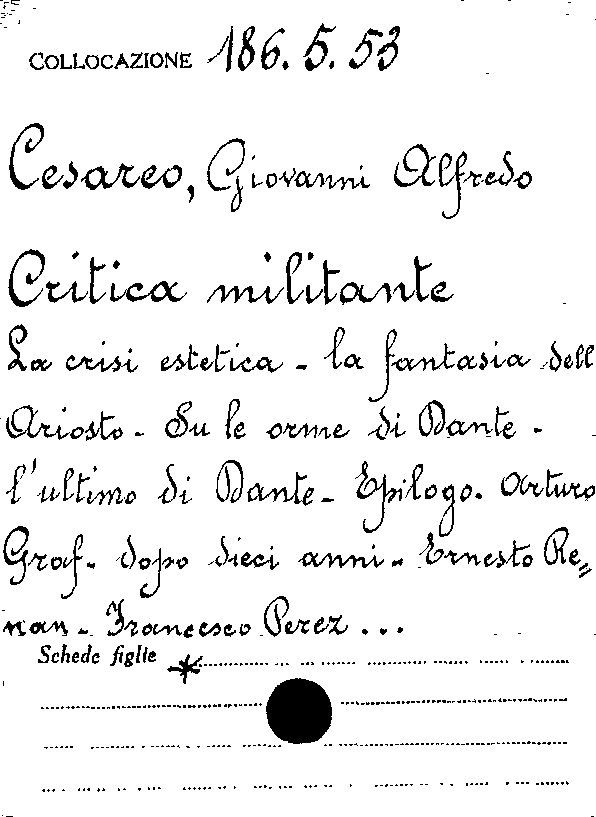 COLLOCAZIONE 186.5.53
Cesareo, Giovanni Alfredo
Critica militante
La crisi estetica - la fantasia dell
Ariosto - Su le orme di Dante -
l'ultimo di Dante - Epilogo. Arturo
Graf - dopo dieci anni - Ernesto Re=
nan - Francesco Perez ...
Schede figlie *